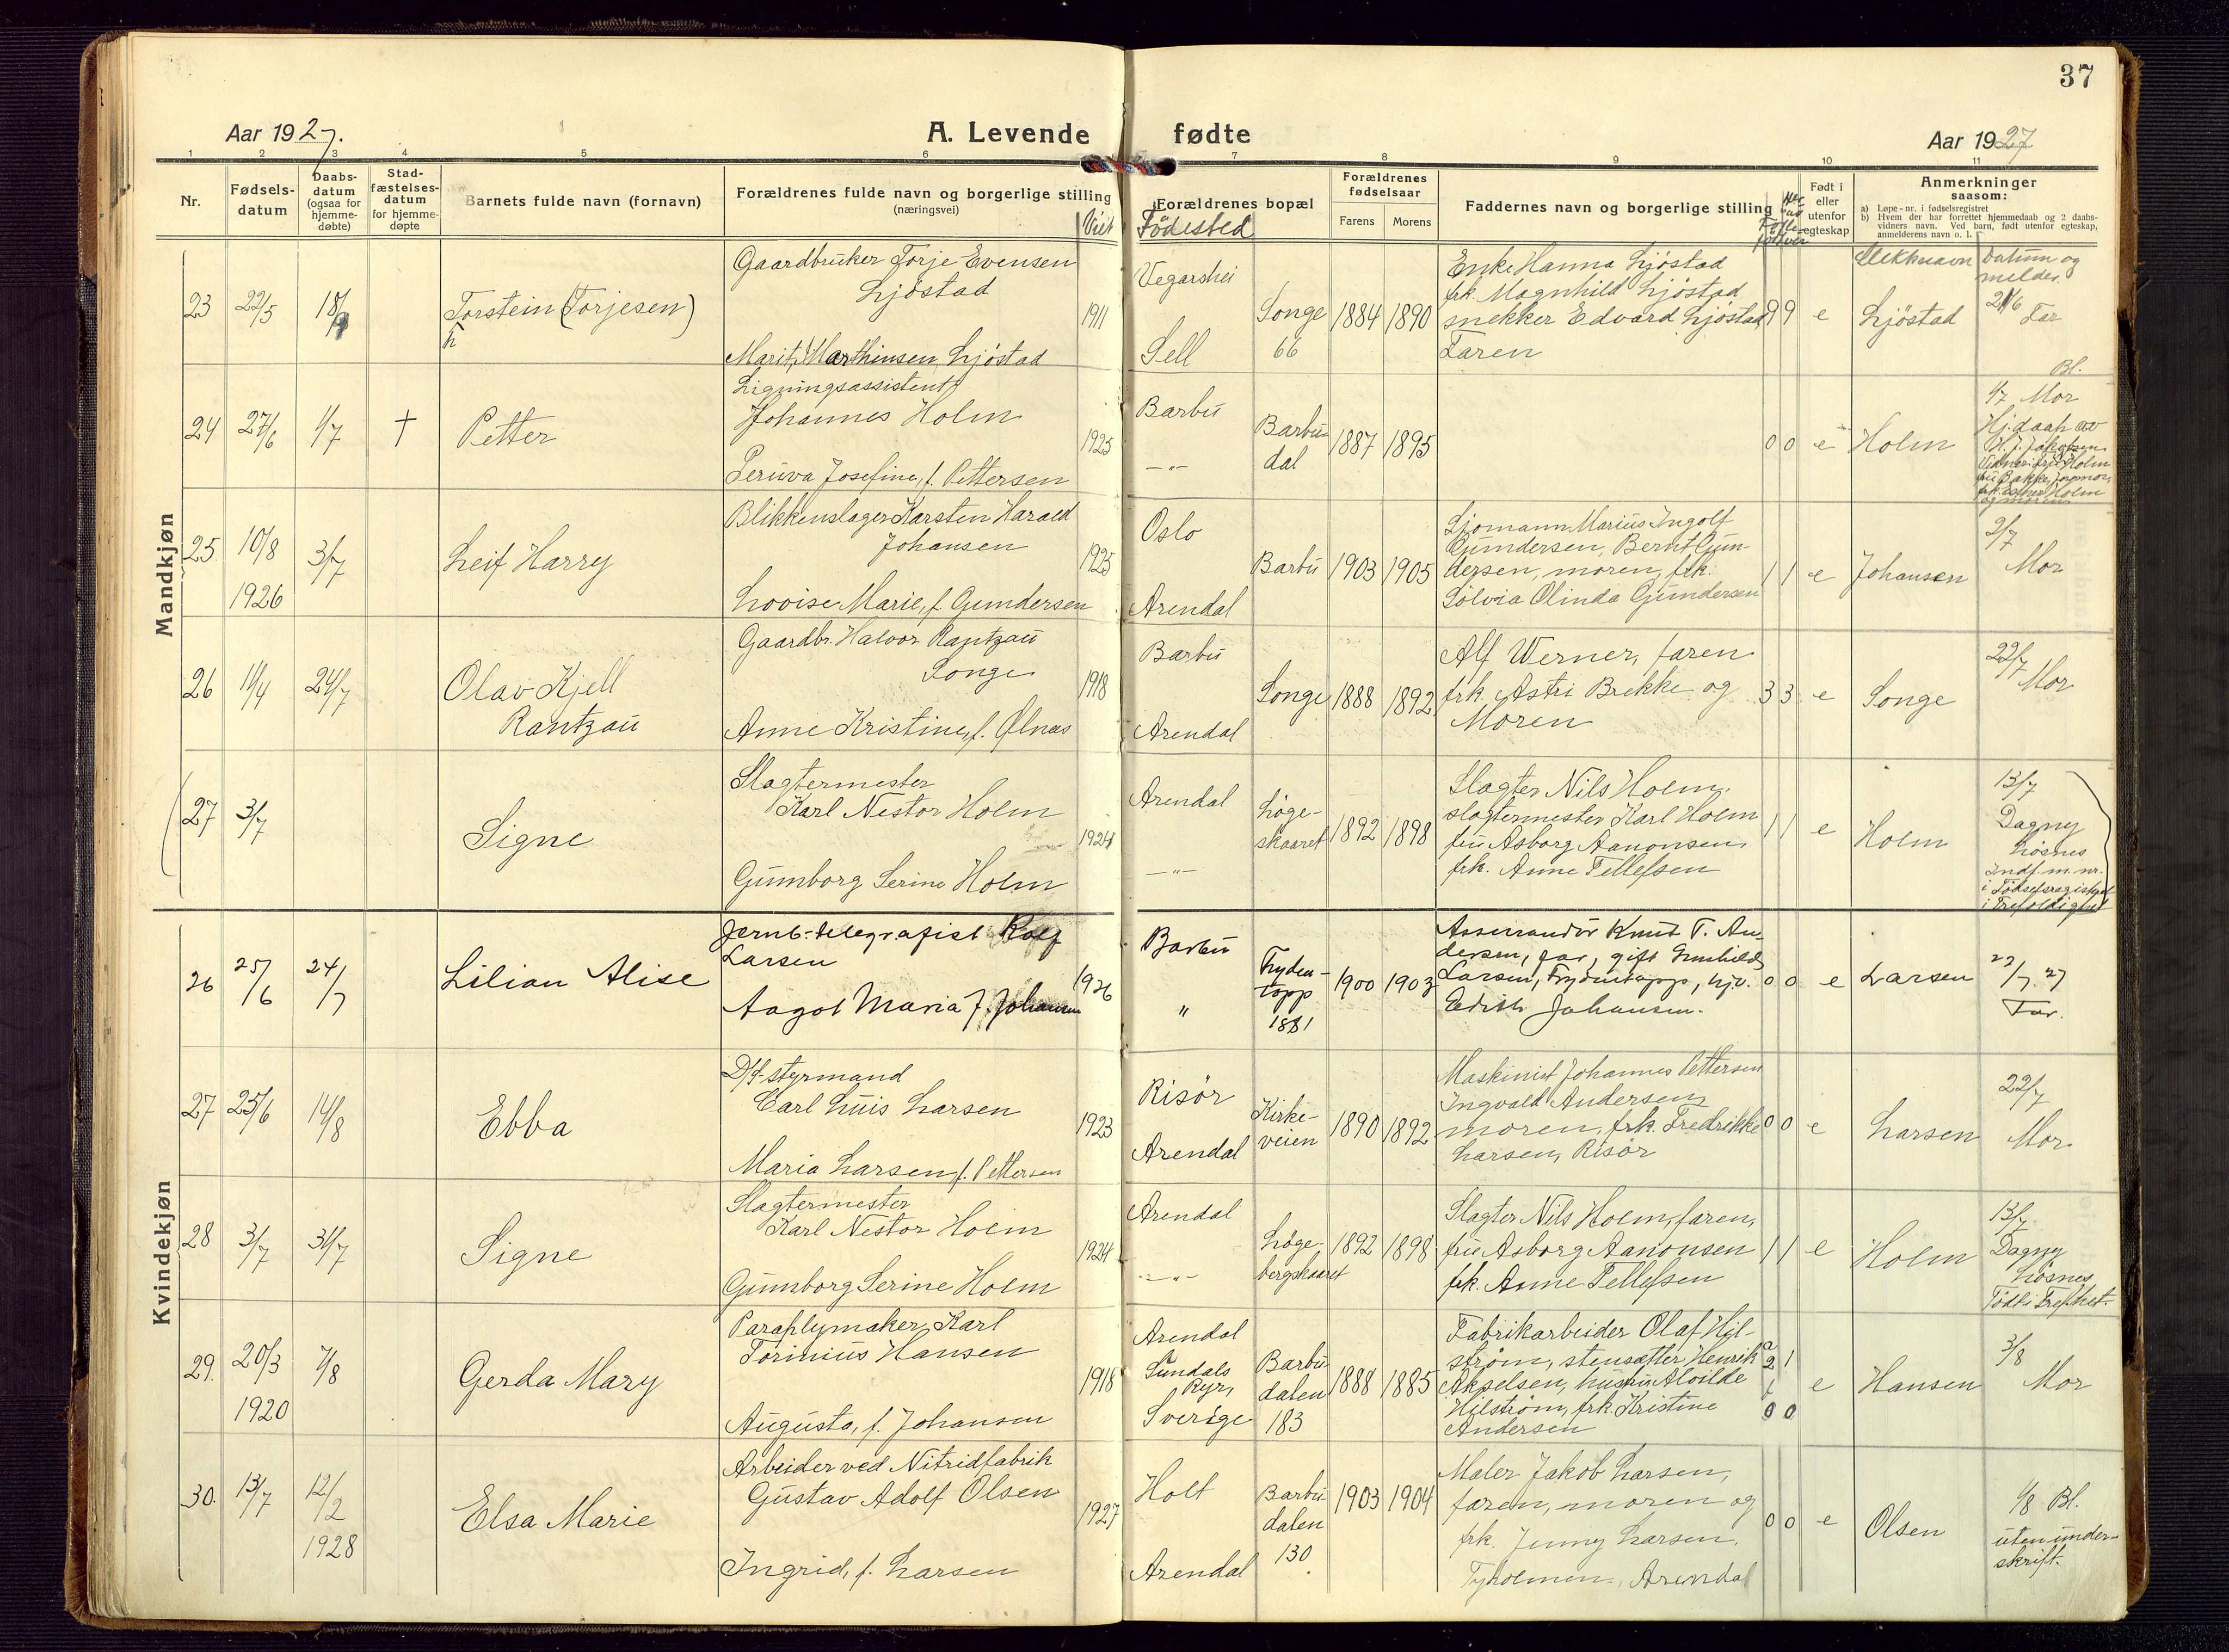 37
Aar 1927.
A. Levende fødte
Aar 1927
1 2 3 4 5 6 7 8 9 10 11
Nr.
Fødsels-
datum
Daabs-
datum
(ogsaa for
hjemme-
døbte)
Stad-
fæstelses-
datum
for hjemme-
døpte
Barnets fulde navn (fornavn)
Forældrenes fulde navn og borgerlige stilling
(næringsvei)
Viet
Forældrenes bopæl
Födested
Forældrenes
fødselsaar
Farens Morens
Faddernes navn og borgerlige stilling
Født i
eller
utenfor
egteskap
Anmerkninger
saasom:
a) Løpe-nr. i fødselsregistret
b) Hvem der har forrettet hjemmedaab og 2 daabs-
vidners navn. Ved barn, født utenfor egteskap,
anmelderens navn o. l.
Slektsnavn
Datum og
melder
Mandkjøn
23
22/5
18/9
Torstein (Torjesen)
Gaardbruker Torje Evensen
Ljöstad
Marit, Marthinsen, Ljöstad
1911
Vegarshei
Sell
Songe
66
1884
1890
Enke Hanna Ljöstad
frk. Magnhild Ljöstad
snekker Edvard Ljöstad
Faren
9 9
e
Ljöstad
21/6
Far
24
27/6
1/7
†
Petter
Ligningsassistent
Johannes Holm
Peruva Josefine, f. Pettersen
1925
Barbu
—"—
Barbu-
dal
1887
1895
0 0
e
Holm
Bl.
1/7 Mor
Hj. daap av
25.
10/8
1926
3/7
Leif Harry
Blikkenslager Karsten Harald
Johansen
Lovise Marie, f. Gundersen
1925
Oslo
Arendal
Barbu
1903
1905
Sjömann Marius Ingolf
Gundersen, Bernt Gun-
dersen, moren, frk.
Solvia Olinda Gundersen
1 1
e
Johansen
2/7
Mor
26
11/4
24/7
Olav Kjell
Rantzau
Gaardbr. Halvor Rantzau
Songe
Anne Kristine, f. Ølnes
1918
Barbu
Arendal
Songe
1888
1892
Alf Werner, faren
frk. Astri Brekke og
Moren
3 3
e
Songe
22/7
Mor
27
3/7
Signe
Slagtermester
Karl Nestor Holm
Gunnborg Serine Holm
1924
Arendal
—"—
Löge-
skaaret
1892
1898
Slagter Nils Holm,
slagtermester Karl Holm
fru Asborg Aanonsen,
frk. Anne Tellefsen
1 1
e
Holm
13/7
Dagny
Lösnes
Indf. m. nr.
i Födselsregistret
i Trefoldighet
Kvindekjøn
26
25/6
24/7
Lilian Alise
Jernb.-telegrafist Rolf
Larsen
Aagot Maria f. Johansen
1926
Barbu
"
Fryden-
topp
1881
1900
1903
Assurandör Knut T. An-
dersen, far, gift Gunhild
Larsen, Frydentopp, hjv.
Edith Johansen.
0 0
e
Larsen
22/7.27
Far.
27
25/6
14/8
Ebba
D/S-styrmand
Carl Luis Larsen
Maria Larsen, f. Pettersen
1923
Risör
Arendal
Kirke-
veien
1890
1892
Maskinist Johannes Pettersen
Ingvald Andersen,
moren, frk. Fredrikke
Larsen, Risör
0 0
e
Larsen
22/7
Mor
28
3/7
31/7
Signe
Slagtermester
Karl Nestor Holm
Gunnborg Serine Holm
1924
Arendal
—"—
Löge-
bergskaaret
1892
1898
Slagter Nils Holm, faren,
fru Asborg Aanonsen
frk. Anne Tellefsen
1 1
e
Holm
13/7
Dagny
Lösnes
Födt i Trefhet.
29.
20/3
1920
7/8
Gerda Mary
Paraplymaker Karl
Torinius Hansen
Augusta, f. Johansen
1918
Arendal
Sundals
Ryr,
Sverige
Barbu
dalen
183
1888
1885
Fabrikarbeider Olaf Hil-
ström, stensætter Henrik
Akselsen, husfru Alvilde
Hilström, frk. Kristine
Andersen
2 1
0 0
e
Hansen
3/8
Mor
30.
13/7
12/2
1928
Elsa Marie
Arbeider ved Nitridfabrik
Gustav Adolf Olsen
Ingrid, f. Larsen
1927
Holt
Arendal
Barbu
dalen
130
1903
1904
Maler Jakob Larsen,
faren, moren og
frk. Jenny Larsen,
Tyholmen, Arendal
0 0
e
Olsen
1/8 Bl.
uten under-
skrift.